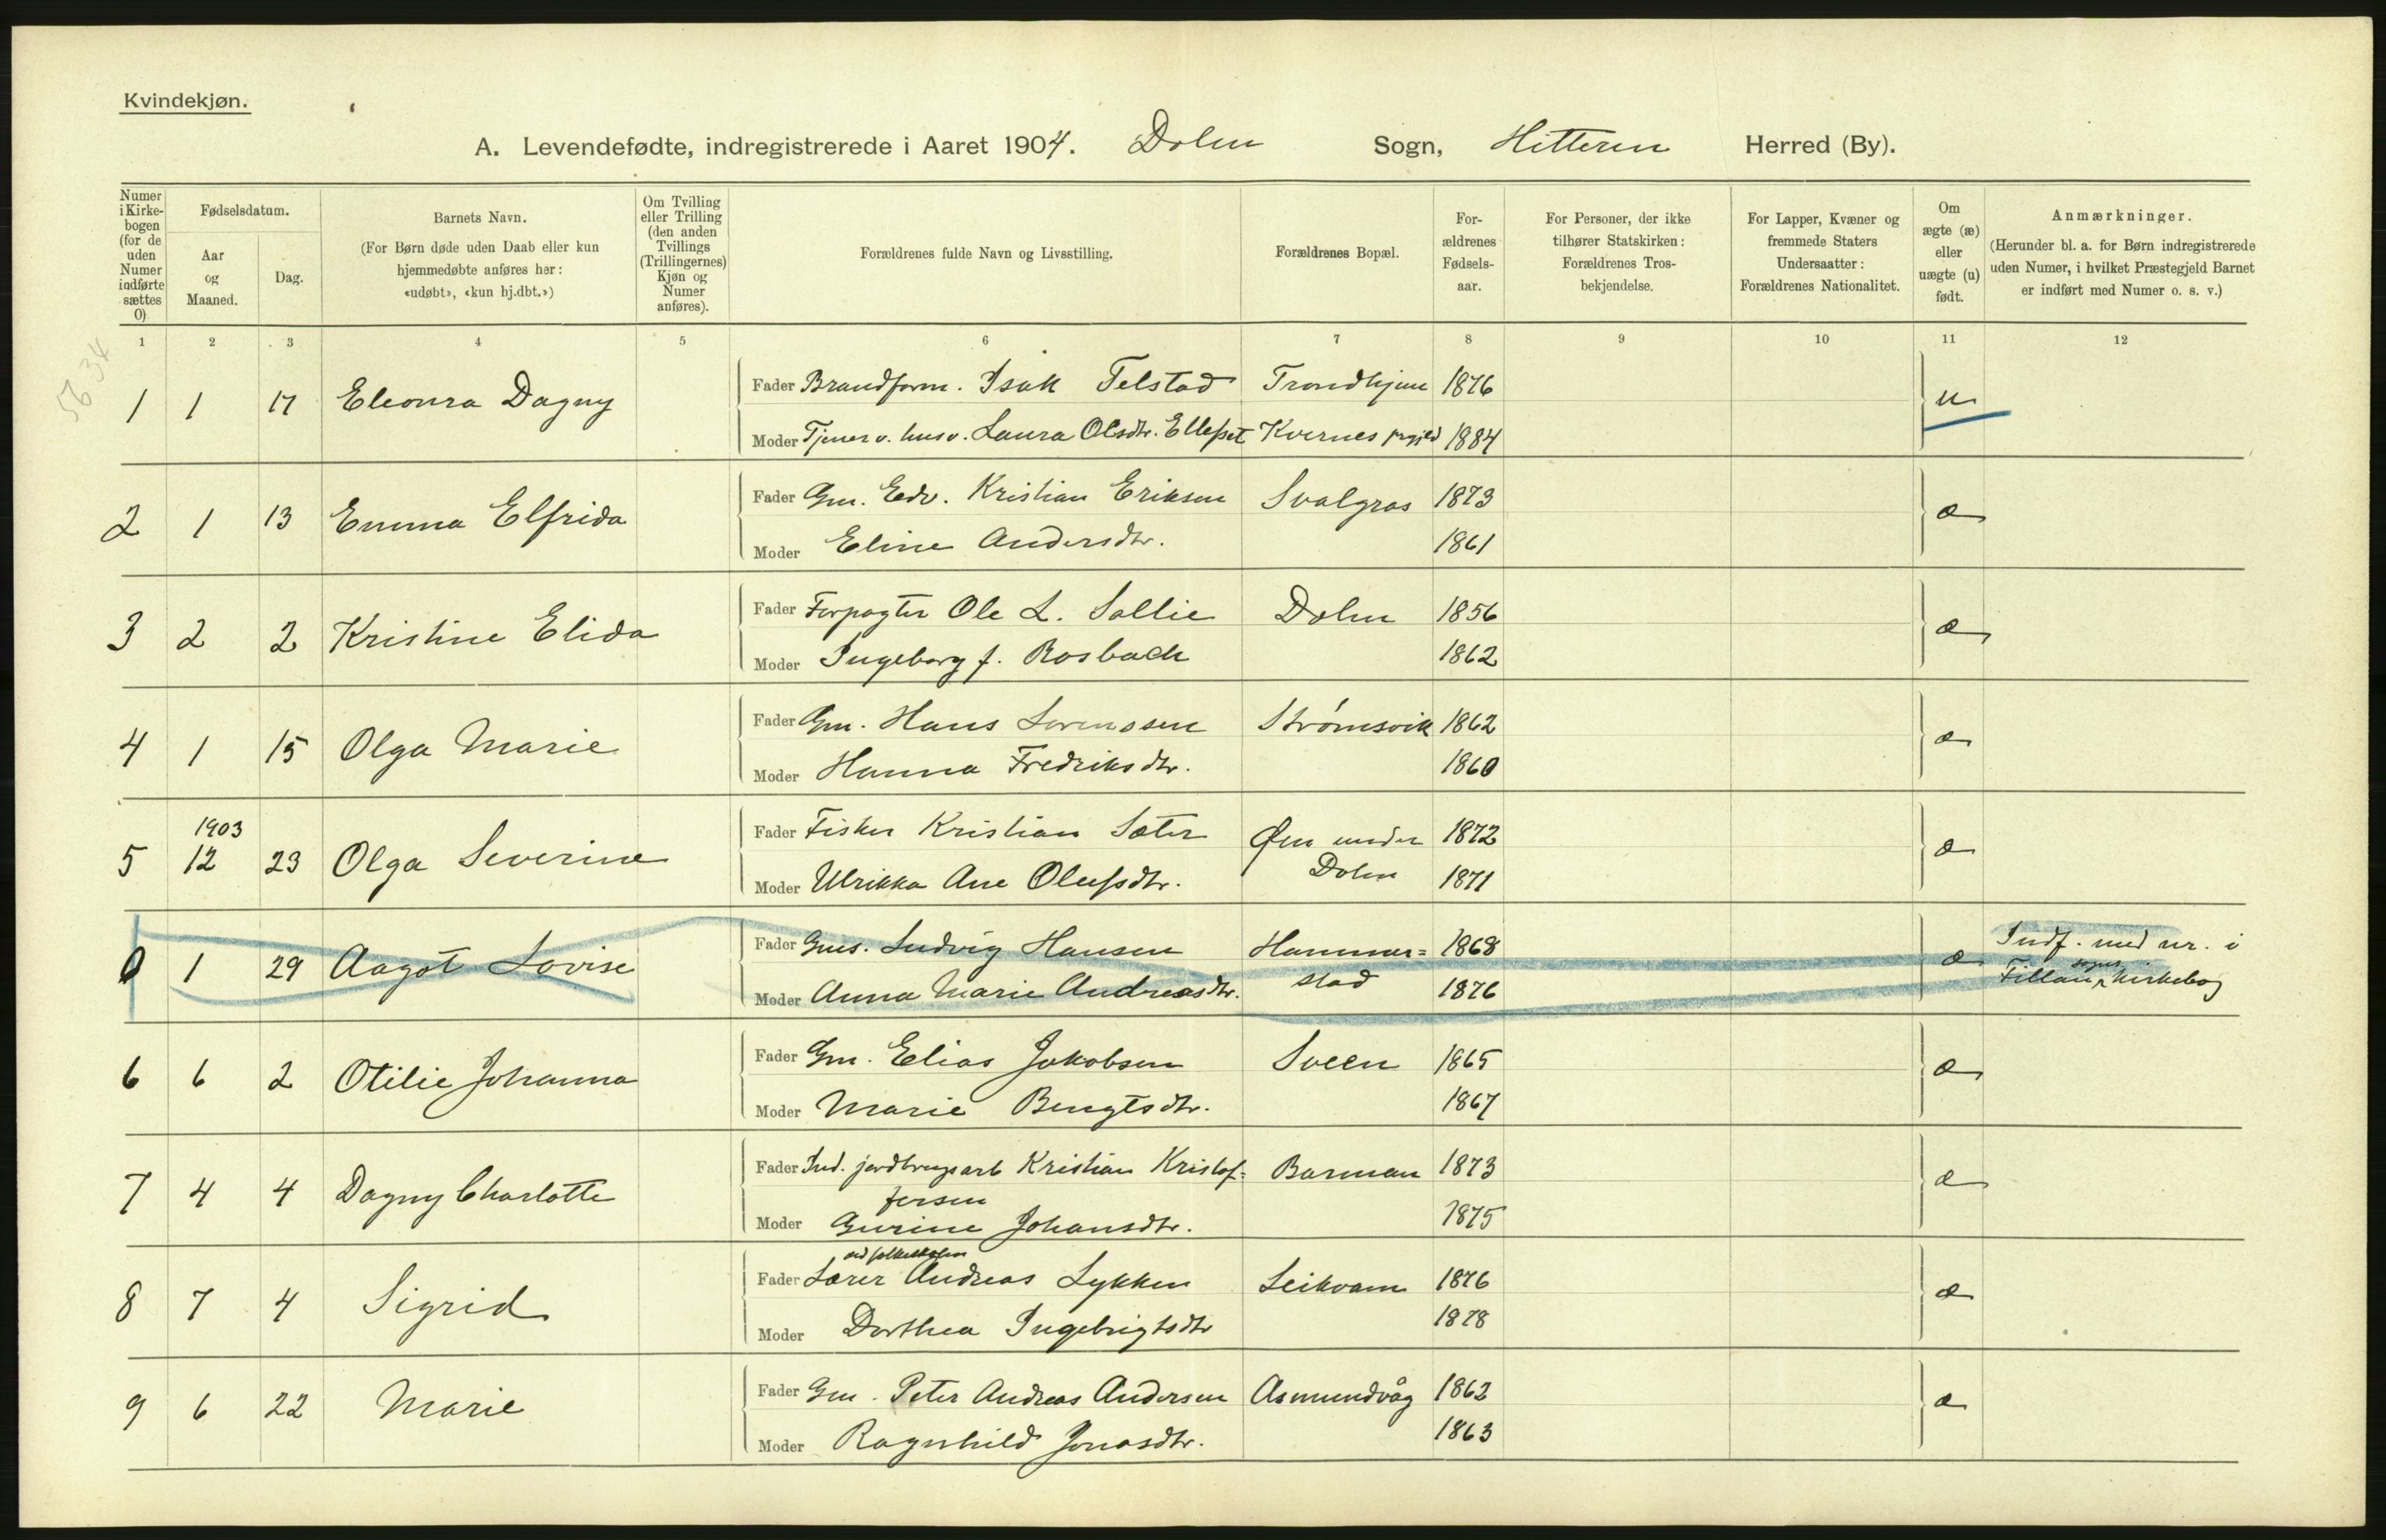 Kvindekjøn.
A. Levendefødte, indregistrerede i Aaret 1904. Dolm Sogn, Hitteren Herred (By).
Numer i Kirke-bogen (for de uden Numer indførte sættes 0)
Fødselsdatum.
Aar og Maaned.
Dag.
Barnets Navn.
(For Børn døde uden Daab eller kun hjemmedøbte anføres her: «udøbt», «kun hj.dbt.»)
Om Tvilling eller Trilling (den anden Tvillings (Trillingernes) Kjøn og Numer anføres).
Forældrenes fulde Navn og Livsstilling.
Forældrenes Bopæl.
For-ældrenes Fødsels-aar.
For Personer, der ikke tilhører Statskirken: Forældrenes Tros-bekjendelse.
For Lapper, Kvæner og fremmede Staters Undersaatter: Forældrenes Nationalitet.
Om ægte (æ) eller uægte (u) født.
Anmærkninger.
(Herunder bl. a. for Børn indregistrerede uden Numer, i hvilket Præstegjeld Barnet er indført med Numer o. s. v.)
1 2 3 4 5 6 7 8 9 10 11 12
56 34
1 1 17 Eleonra Dagny Fader Brandform. Isak Telstad Trondhjem 1876 u
Moder Tjener v. husv. Laura Olsdtr. Ellefset Kvernes prgjeld 1884
2 1 13 Emma Elfrida Fader Gm. Edv. Kristian Eriksen Svalgras 1873 æ
Moder Eline Andersdtr. 1861
3 2 2 Kristine Elida Fader Forpagter Ole L. Sollie Dolm 1856 æ
Moder Ingeborg f. Rosbach 1862
4 1 15 Olga Marie Fader Gm. Hans Lorenssen Strømsvik 1862 æ
Moder Hanna Fredriksdtr. 1860
1903
5 12 23 Olga Severine Fader Fisker Kristian Sæter Øen under 1872 æ
Moder Ulrikka Ane Olufsdtr. Dolm 1871
0 1 29 Aagot Lovise Fader Gms. Ludvig Hansen Hammer= 1868 æ Indf. med nr. i
Moder Anna Marie Andreasdtr. stad 1876 Fillan sogns kirkebog
6 6 2 Otilie Johanna Fader Gm. Elias Jakobsen Sveen 1865 æ
Moder Marie Bengtsdtr. 1867
7 4 4 Dagny Charlotte Fader Ind. jordbrugsarb Kristian Kristof= Barman 1873 æ
fersen
Moder Gurine Johansdtr. 1875
ved folkeskolen
8 7 4 Sigrid Fader Lærer Andreas Lykken Leikvam 1876 æ
Moder Dorthea Ingebrigtsdtr 1878
9 6 22 Marie Fader Gm. Peter Andreas Andersen Asmundvåg 1862 æ
Moder Ragnhild Jonasdtr. 1863